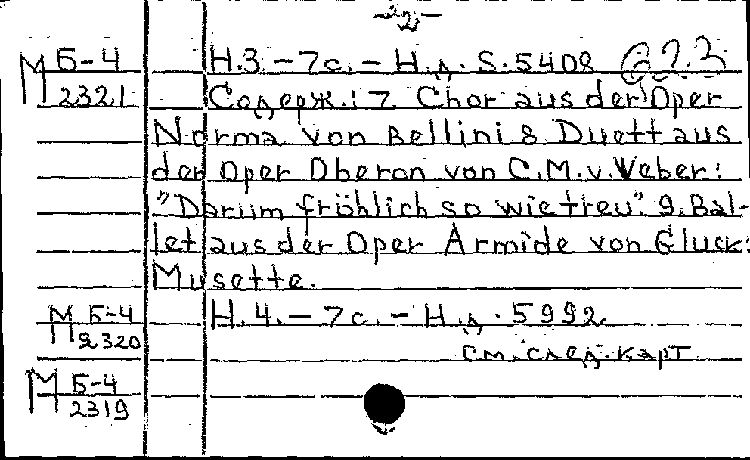 -2-
М Б-4 Н.3.-7с.-Н.д.S.5408
2321 Содерж.: 7. Chor aus der Oper
Norma von Bellini 8 Duett aus
der Oper Oberon von C.M.v.Weber:
"Darum fröhlich so wie treu". 9. Bal-
let aus der Oper Armide von Gluck:
Musette.
М Б-4 Н.4.-7с.-Н.д.5992.
2320 см. след. карт.
М Б-4
2319